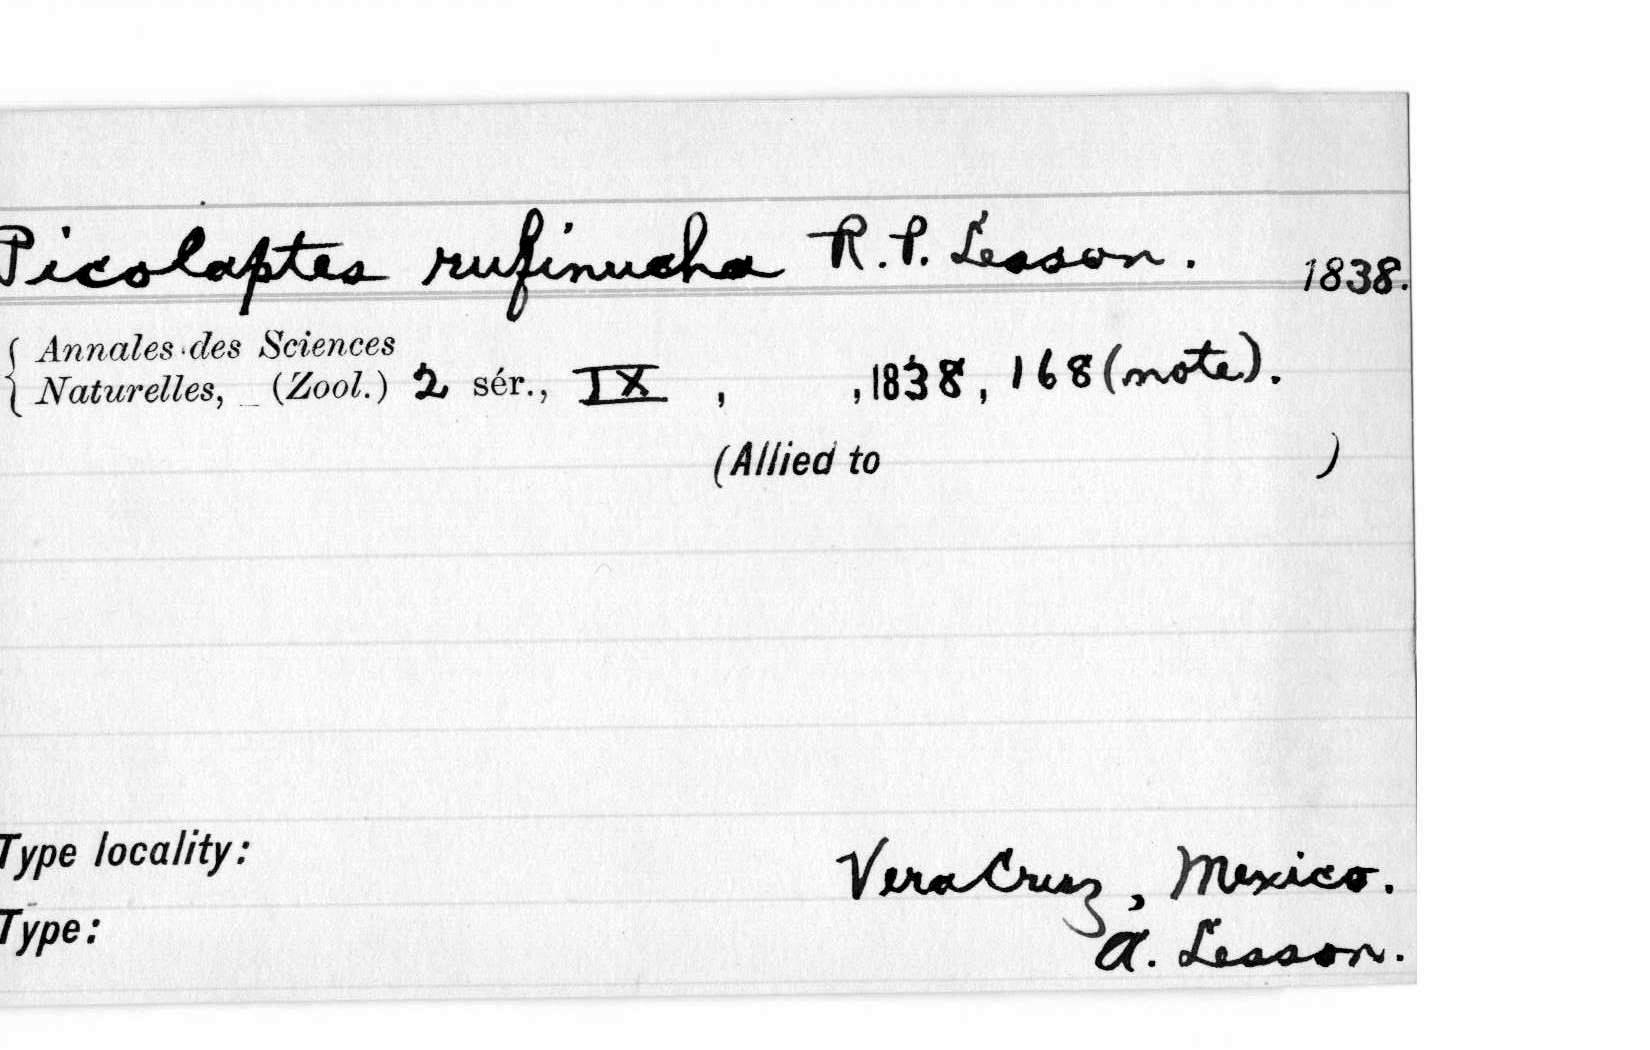 Picolaptes rufinucha R.P. Lesson. 1838.
Annales des Sciences
Naturelles, (Zool.) 2 sér., IX , , 1838, 168 (note).
(Allied to )
Type locality: Vera Cruz, Mexico.
Type: A. Lesson.